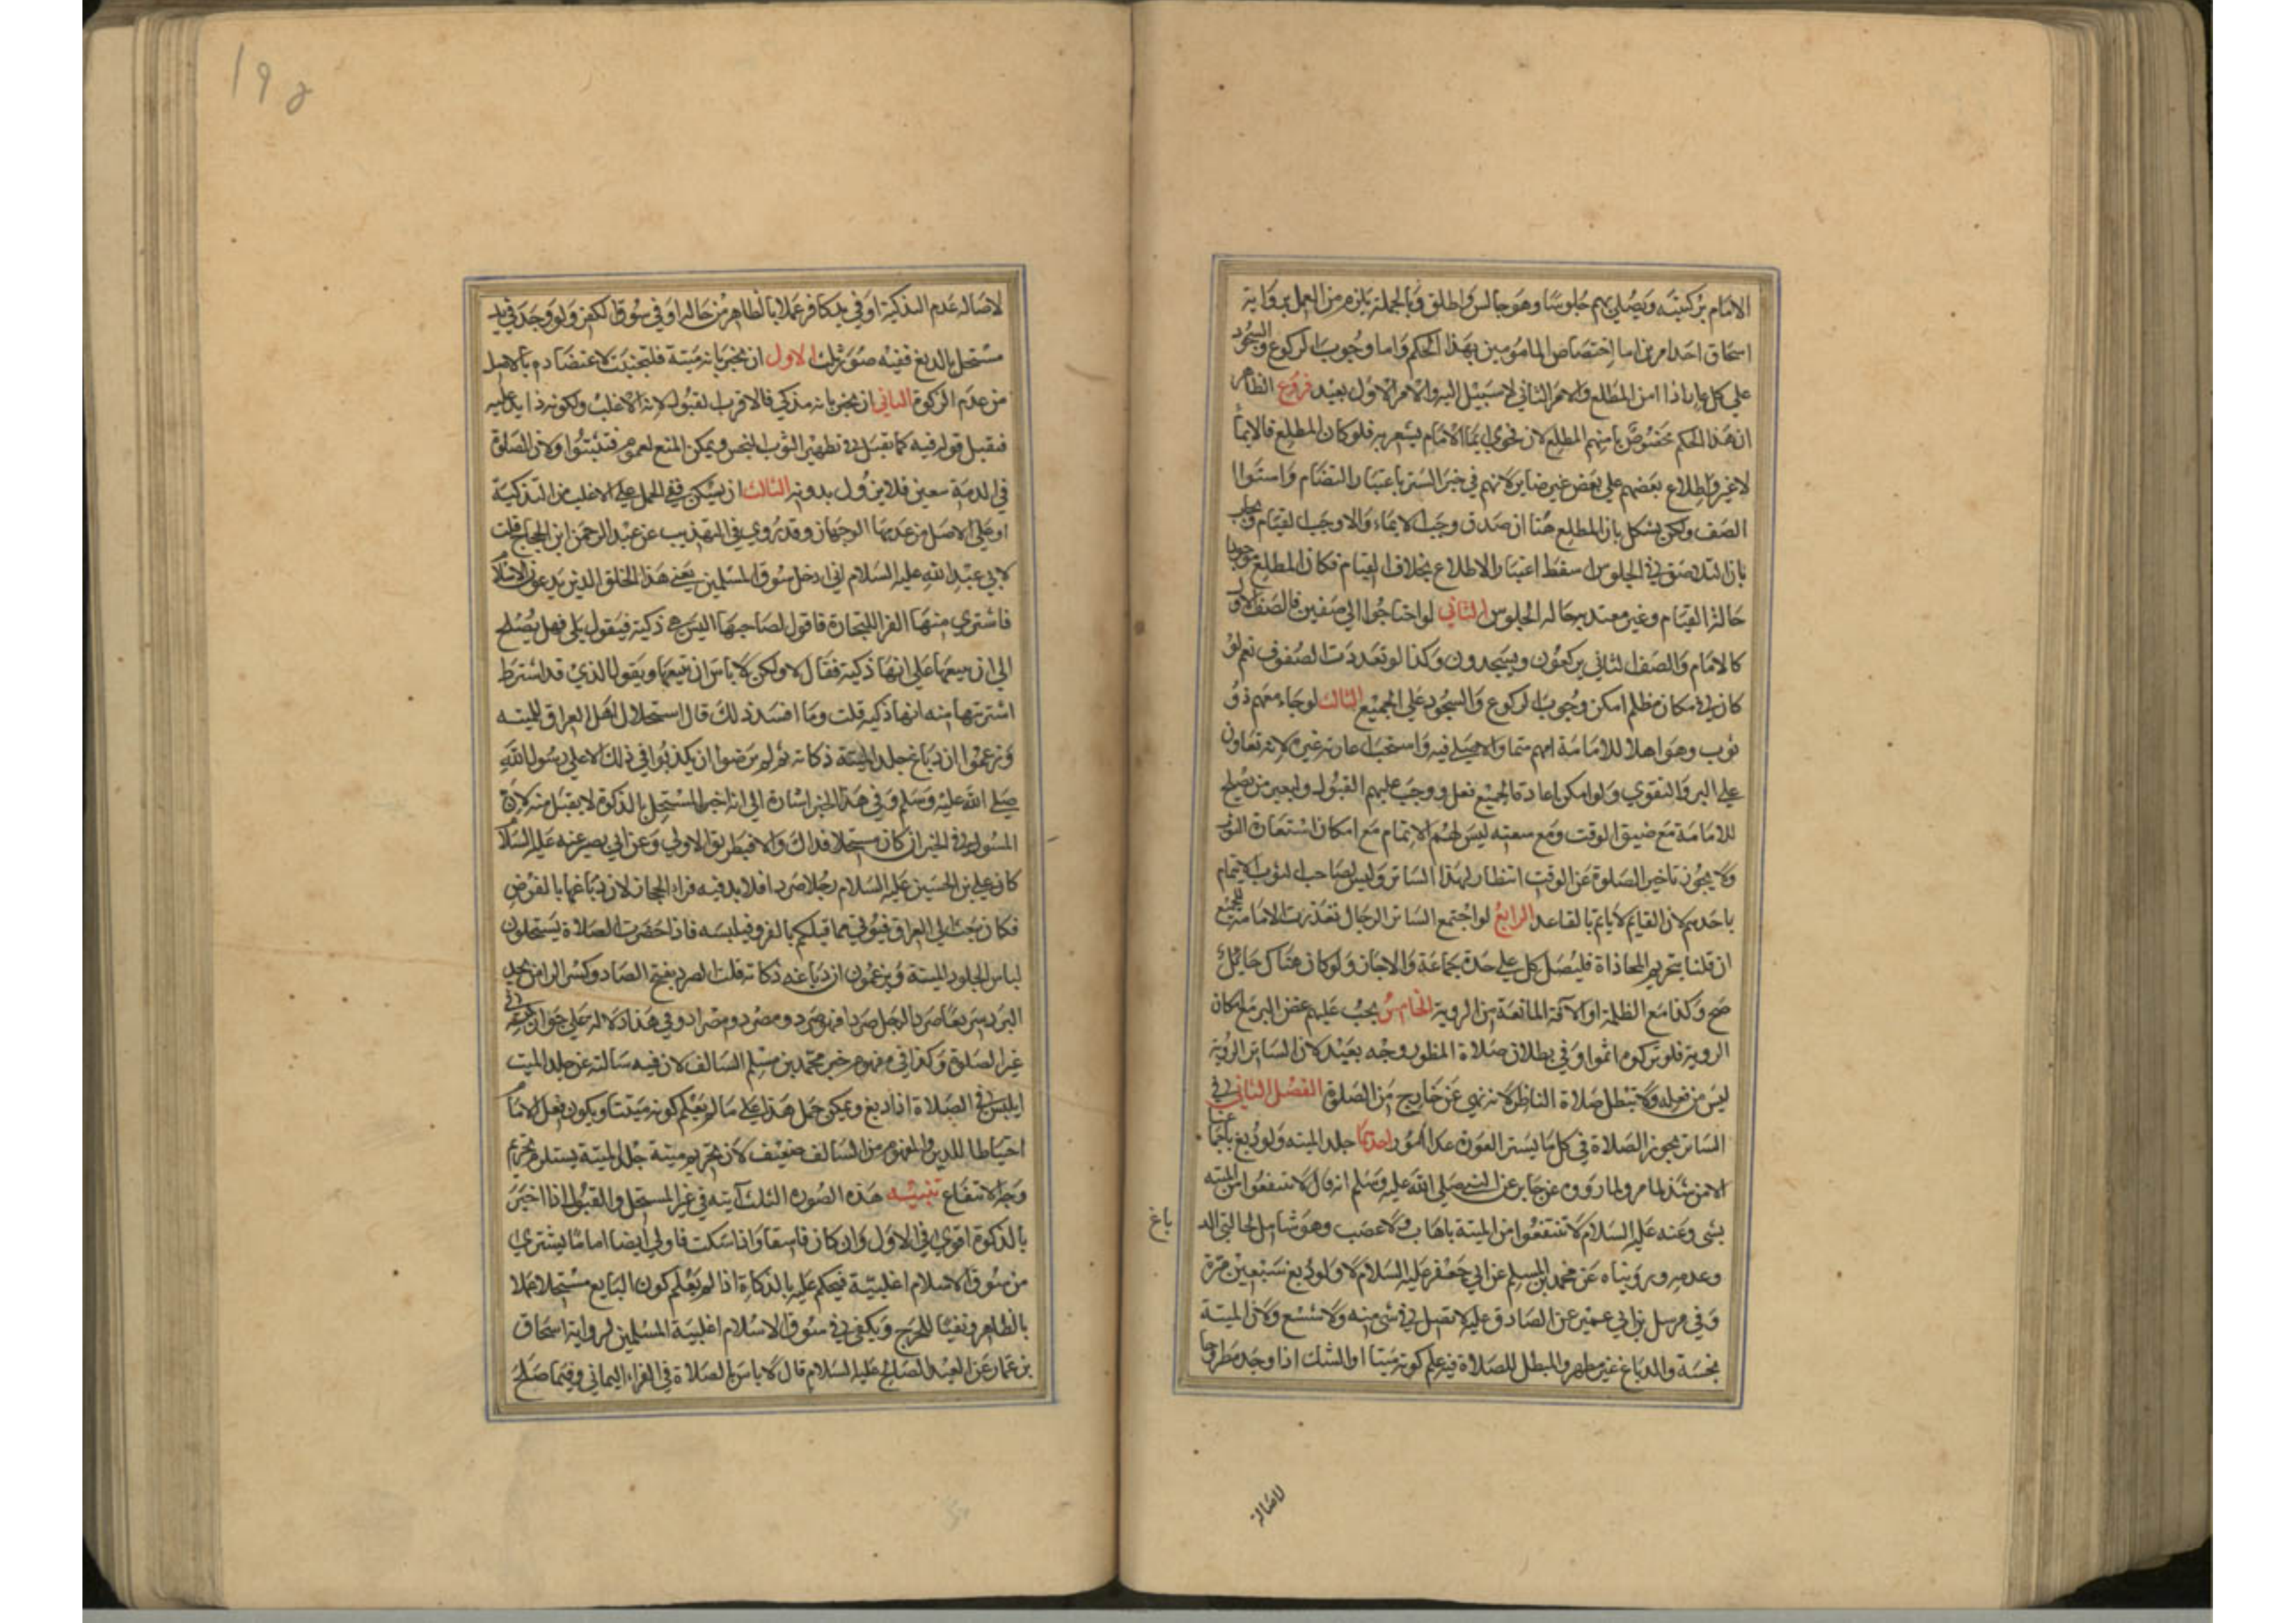 الامام بركبتيه ويصلي بهم جلوسا وهو جالس واطلق وبالجملة يلزم من العمل برواية
اسحاق احد امرين اما اختصاص المامومين بهذا الحكم واما وجوب الركوع والسجود
على كل عار اذا امن المطلع والامر الثاني لا سبيل اليه والامر الاول بعيد فروع الظاهر
ان هذا الحكم مخصوص بامنهم المطلع لان فحوى ايماء الامام يشعر به فلو كان المطلع فالايماء
لا غير واطلاع بعضهم على بعض غير ضاير لانهم في حيز الستر باعتبار التضام واستواء
الصف ولكن يشكل بان المطلع هنا ان صدق وجب الايماء والا وجب القيام ويجاب
بان التلاصق في الجلوس اسقط اعتبار الاطلاع بخلاف القيام فكان المطلع موجودا
حالة القيام وغير معتد به حالة الجلوس الثاني لو احتاجوا الى صفين فالصف الاول
كالامام والصف الثاني يركعون ويسجدون وكذا لو تعددت الصفوف نعم لو
كان في مكان مظلم امكن وجوب الركوع والسجود على الجميع الثالث لو جاء معهم ذو
ثوب وهو اهلا للامامة امهم متما والا صلى فيه واستحب اعارته غيره لانه تعاون
على البر والتقوى ولو امكن اعادة الجميع فعل ووجب عليهم القبول ولا يعير من يصلح
للامامة مع ضيق الوقت ومع سعته ليس لهم الايتمام مع امكان استعارة الثوب
ولا يجوز تاخير الصلوة عن الوقت انتظار لهذا الساتر وليس لصاحب الثوب الايتمام
باحدهم لان القايم لا ياتم بالقاعد الرابع لو اجتمع النساء الرجال تعذرت الامامة للجميع
ان قلنا بتحريم المحاذاة فليصل كل على حدة بجماعة والا جاز ولو كان هناك حايل
صح وكذا مع الظلمة او الآفة المانعة من الروية الخامس يجب عليهم غض البصر مع امكان
الروية فلو تركوه اثموا وفي بطلان صلاة المنظور وجه بعيد لان الساتر الروية
ليس من فعله ولا تبطل صلاة الناظر لانه نهي عن خارج من الصلوة الفصل الثاني في
الساتر يجوز الصلاة في كل ما يستر العورة عدا امور احدها جلد الميتة ولو دبغ باجماعنا
الا من شذ لما مر ولما رووه عن جابر عن النبي صلى الله عليه وسلم انه قال لا تنتفعوا من الميتة
بشي وعنه عليه السلام لا تنتفعوا من الميتة باهاب ولا عصب وهو شامل لحالتي الد
باغ
وعدمه وروينا عن محمد بن المسلم عن ابي جعفر عليه السلام لا ولو دبغ سبعين مرة
وفي مرسل بن ابي عمير عن الصادق عليه لا تصل في شي منه ولا شسع ولان الميتة
نجسة والدباغ غير مطهر والمبطل للصلاة فيه علم كونه ميتا او الشك اذا وجد مطروحا
لاصالة
١٩٥
لاصالة عدم التذكية او في يد كافر عملا بالظاهر من حاله او في سوق الكفر ولو وجد في يد
مستحل بالدبغ ففيه صور ثلث الاول ان يخبر بانه ميتة فليجتنب لاعتضاده بالاصل
من عدم الزكوة الثاني ان يخبر بانه مذكى فالاقرب القبول لانه الاغلب ولكونه ذا يد عليه
فيقبل قوله فيه كما يقبل في تطهير الثوب النجس ويمكن المنع لعموم فتثبتوا ولان الصلوة
في الذمة بيقين فلا يزول بدونه الثالث ان يسكت ففي الحمل على الاغلب من التذكية
او على الاصل من عدمها الوجهان وقد روي في التهذيب عن عبد الرحمن ابن الحجاج قلت
لابي عبد الله عليه السلام اني ادخل سوق المسلمين يعني هذا الخلق الذين يدعون الاسلام
فاشتري منها الفراء للتجارة فاقول لصاحبها اليس هي ذكية فيقول بلى فهل يصلح
الي ان ابيعها على انها ذكية فقال لا ولكن لا باس ان تبيعها ويقول الذي قد اشترط
اشتريتها منه انها ذكية قلت وما افسد ذلك قال استحلال اهل العراق للميتة
وزعموا ان دباغ جلد الميتة ذكاته ثم لم يرضوا ان يكذبوا في ذلك الا على رسول الله
صلى الله عليه وسلم وفي هذا الخبر اشارة الى انه اخبر المستحل بالذكوة لا يقبل منه لان
المسئول في الخبر ان كان مستحلا فذاك والا فبطريق الاولى وعن ابي بصير عنه عليه السلام
كان علي بن الحسين عليه السلام رجلا صردا فلا يدفيه فراء الحجاز لان دباغها بالقرض
فكان يبعث الى العراق فيؤتى مما قبلكم بالفرو فيلبسه فاذا حضرت الصلاة يستحلون
لباس الجلود الميتة ويزعمون ان دباغه ذكاته قلت الصرد بفتح الصاد وكسر الراء من يجد
البرد سريعا صرد الرجل صردا فهو صرد ومصرد ومصراد وفي هذا دلالة على جواز لبسه في
غير الصلوة وكذا في مفهوم خبر محمد بن مسلم السالف لان فيه سالته عن جلد الميت
ايلبس في الصلاة اذا دبغ ويمكن حمل هذا على ما لم يعلم كونه ميتا ويكون فعل الامام
احتياطا للدين والمفهوم من السالف ضعيف لان تحريم ميتة جلد الميتة يستلزم تحريم
وجه الانتفاع تنبيه هذه الصورة الثلث آتيه في غير المستحل والقبول اذا اخبر
بالذكوة اقوى في الاول وان كان فاسقا واذا سكت فاولى ايضا اما ما يشترى
من سوق الاسلام اغلبيته فيحكم عليه بالذكاة اذا لم يعلم كون البايع مستحلا عملا
بالظاهر ونفيا للحرج ويكفي في سوق الاسلام اغلبية المسلمين لرواية اسحاق
بن عمار عن العبد الصالح عليه السلام قال لا باس بالصلاة في الفراء اليماني وفيما صلح